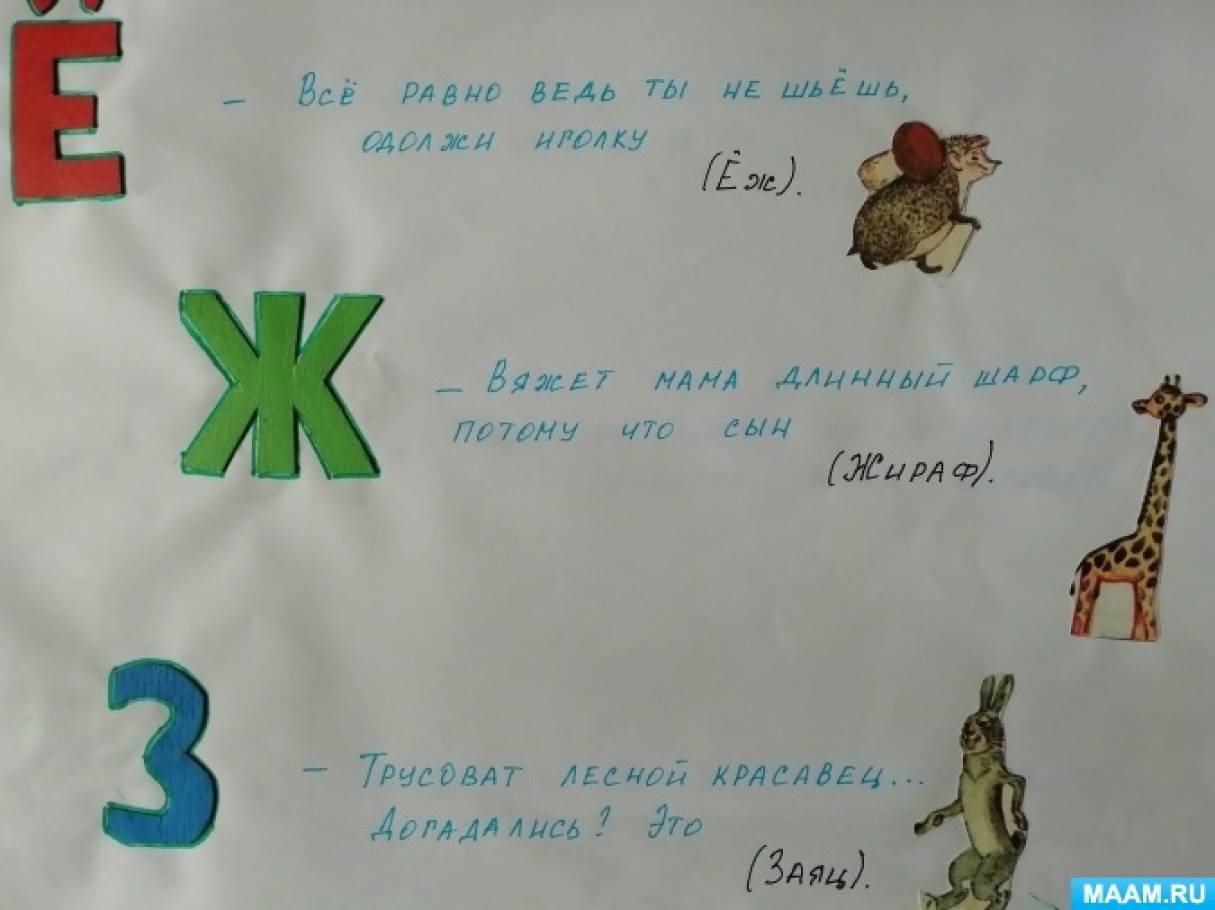 Ё
– Всё равно ведь ты не шьёшь,
одолжи иголку
(Ёж).
Ж
– Вяжет мама длинный шарф,
потому что сын
(Жираф).
З
– Трусоват лесной красавец...
Догадались? Это
(Заяц).
MAAM.RU